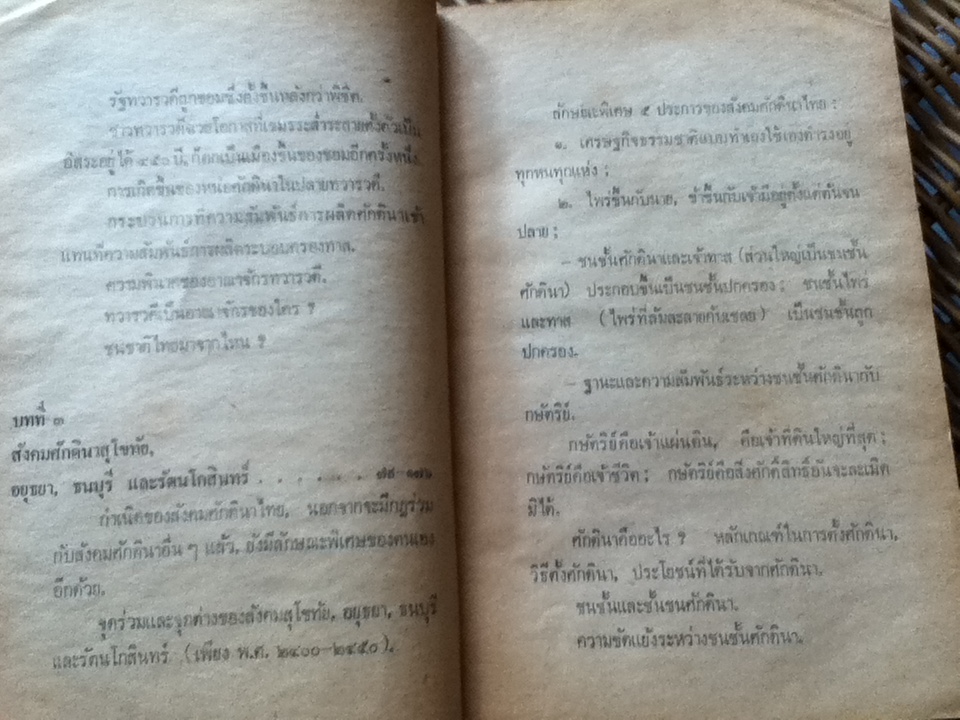 รัฐทวารวดีถูกขอมซึ่งตั้งขึ้นหลังกว่าพิชิต.
ชาวทวารวดีฉวยโอกาสที่เขมรระส่ำระสายตั้งตัวเป็น
อิสระอยู่ได้ ๔๕๐ ปี, ก็ตกเป็นเมืองขึ้นของขอมอีกครั้งหนึ่ง.
การเกิดขึ้นของหน่อศักดินาในปลายทวารวดี.
กระบวนการที่ความสัมพันธ์การผลิตศักดินาเข้า
แทนที่ความสัมพันธ์การผลิตระบอบครองทาส.
ความพินาศของอาณาจักรทวารวดี.
ทวารวดีเป็นอาณาจักรของใคร ?
ชนชาติไทยมาจากไหน ?
บทที่ ๓
สังคมศักดินาสุโขทัย,
อยุธยา, ธนบุรี และรัตนโกสินทร์ . . . . . . ๗๕-๑๗๖
กำเนิดของสังคมศักดินาไทย, นอกจากจะมีกฎร่วม
กับสังคมศักดินาอื่น ๆ แล้ว, ยังมีลักษณะพิเศษของตนเอง
อีกด้วย.
จุดร่วมและจุดต่างของสังคมสุโขทัย, อยุธยา, ธนบุรี
และรัตนโกสินทร์ (เพียง พ.ศ. ๒๔๐๐-๒๔๕๐).
ลักษณะพิเศษ ๕ ประการของสังคมศักดินาไทย :
๑. เศรษฐกิจธรรมชาติแบบทำเองใช้เองดำรงอยู่
ทุกหนทุกแห่ง ;
๒. ไพร่ขึ้นกับนาย, ข้าขึ้นกับเจ้ามีอยู่ตั้งแต่ต้นจน
ปลาย ;
– ชนชั้นศักดินาและเจ้าทาส (ส่วนใหญ่เป็นชนชั้น
ศักดินา) ประกอบขึ้นเป็นชนชั้นปกครอง ; ชนชั้นไพร่
และทาส (ไพร่ที่ล้มละลายกับเชลย) เป็นชนชั้นถูก
ปกครอง.
– ฐานะและความสัมพันธ์ระหว่างชนชั้นศักดินากับ
กษัตริย์.
กษัตริย์คือเจ้าแผ่นดิน, คือเจ้าที่ดินใหญ่ที่สุด ;
กษัตริย์คือเจ้าชีวิต ; กษัตริย์คือสิ่งศักดิ์สิทธิ์อันจะละเมิด
มิได้.
ศักดินาคืออะไร ? หลักเกณฑ์ในการตั้งศักดินา,
วิธีตั้งศักดินา, ประโยชน์ที่ได้รับจากศักดินา.
ชนชั้นและชั้นชนศักดินา.
ความขัดแย้งระหว่างชนชั้นศักดินา.